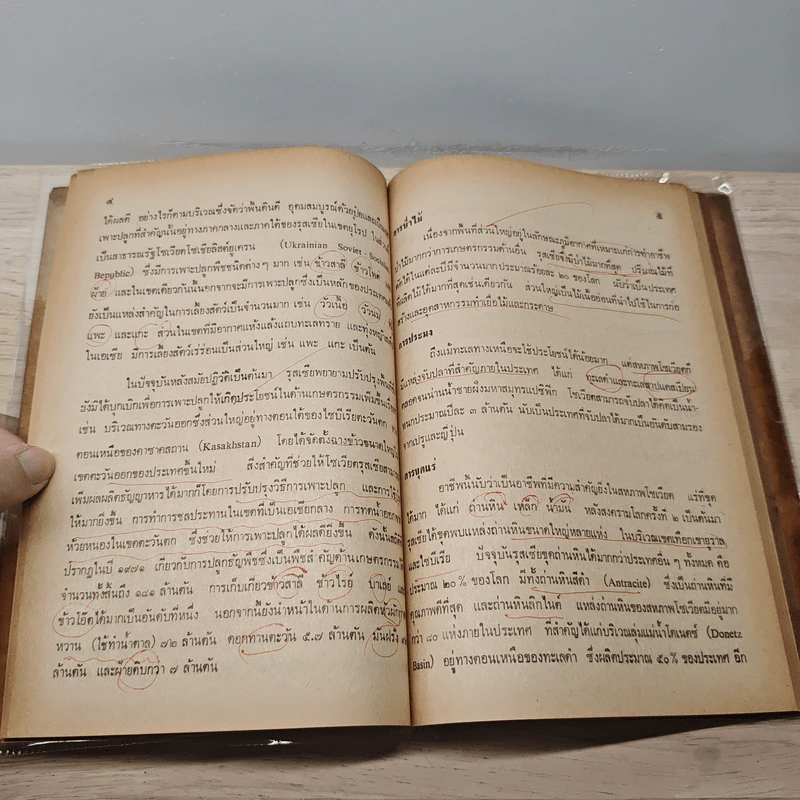 ๔
ได้ผลดี อย่างไรก็ตามบริเวณซึ่งจัดว่าพื้นดินดี อุดมสมบูรณ์ด้วยปุ๋ยและเป็น
เพาะปลูกที่สำคัญนั้นอยู่ทางภาคกลางและภาคใต้ของรุสเซียในเขตยุโรป
เป็นสาธารณรัฐโซเวียตโซเชียลิสต์ยูเครน (Ukrainian Soviet Social
Bepyblic) ซึ่งมีการเพาะปลูกพืชชนิดต่างๆ มาก เช่น ข้าวสาลี ข้าวโพด
ฝ้าย และในเขตเดียวกันนี้นอกจากจะมีการเพาะปลูกซึ่งเป็นหลักของประเทศแล้ว
ยังเป็นแหล่งสำคัญในการเลี้ยงสัตว์เป็นจำนวนมาก เช่น วัวเนื้อ วัวนม
แพะ และแกะ ส่วนในเขตที่มีอากาศแห้งแล้งแถบทะเลทราย และทุ่งหญ้า
ในเอเซีย มีการเลี้ยงสัตว์เร่ร่อนเป็นส่วนใหญ่ เช่น แพะ แกะ เป็นต้น
ในปัจจุบันหลังสมัยปฏิวัติเป็นต้นมา รุสเซียพยายามปรับปรุงพื้นที่
ยังมิได้บุกเบิกเพื่อการเพาะปลูกให้เกิดประโยชน์ในด้านเกษตรกรรมเพิ่มขึ้น
เช่น บริเวณทางตะวันออกซึ่งส่วนใหญ่อยู่ทางตอนใต้ของไซบีเรียตะวันตก
ตอนเหนือของคาซาคสถาน (Kasakhstan) โดยได้จัดตั้งฉางข้าวขนาดใหญ่
เขตตะวันออกของประเทศขึ้นใหม่ สิ่งสำคัญที่ช่วยให้โซเวียตรุสเซียสามารถ
เพิ่มผลผลิตธัญญาหารได้มากก็โดยการปรับปรุงวิธีการเพาะปลูก และการใช้
ให้มากยิ่งขึ้น การทำการชลประทานในเขตที่เป็นเอเชียกลาง การทดน้ำออก
ห้วยหนองในเขตตะวันตก ซึ่งช่วยให้การเพาะปลูกได้ผลดียิ่งขึ้น ดังนั้นสถิติ
ปรากฏในปี ๑๙๗๑ เกี่ยวกับการปลูกธัญพืชซึ่งเป็นพืชสำคัญด้านเกษตรกรรม
จำนวนทั้งสิ้นถึง ๑๘๑ ล้านตัน การเก็บเกี่ยวข้าวสาลี ข้าวไรย์ บาเลย์ และ
ข้าวโอ๊ตได้มากเป็นอันดับที่หนึ่ง นอกจากนี้ยังนำหน้าในด้านการผลิตหัวผักกาด
หวาน (ใช้ทำน้ำตาล) ๗๒ ล้านตัน ดอกทานตะวัน ๕.๗ ล้านตัน มันฝรั่ง
ล้านตัน และฝ้ายดิบกว่า ๗ ล้านตัน
๕
การป่าไม้
เนื่องจากพื้นที่ส่วนใหญ่อยู่ในลักษณะภูมิอากาศที่เหมาะแก่การทำอาชีพ
ป่าไม้มากกว่าการเกษตรกรรมด้านอื่น รุสเซียจึงมีป่าไม้มากที่สุด ปริมาณไม้ที่
ตัดได้ในแต่ละปีมีจำนวนมากประมาณร้อยละ ๒๐ ของโลก นับว่าเป็นประเทศ
ที่ผลิตไม้ได้มากที่สุดเช่นเดียวกัน ส่วนใหญ่เป็นไม้เนื้ออ่อนที่นำไปใช้ในการก่อ
สร้างและอุตสาหกรรมทำเยื่อไม้และกระดาษ
การประมง
ถึงแม้ทะเลทางเหนือจะใช้ประโยชน์ได้น้อยมาก แต่สหภาพโซเวียตก็
มีแหล่งจับปลาที่สำคัญภายในประเทศ ได้แก่ ทะเลดำและทะเลสาบแคสเปียน
ตลอดจนน่านน้ำชายฝั่งมหาสมุทรแปซิฟิก โซเวียตสามารถจับปลาได้คิดเป็นน้ำ-
หนักประมาณปีละ ๓ ล้านตัน นับเป็นประเทศที่จับปลาได้มากเป็นอันดับสามรอง
จากเปรูและญี่ปุ่น
การขุดแร่
อาชีพนี้นับว่าเป็นอาชีพที่มีความสำคัญยิ่งในสหภาพโซเวียต แร่ที่ขุด
ได้มาก ได้แก่ ถ่านหิน เหล็ก น้ำมัน หลังสงครามโลกครั้งที่ ๒ เป็นต้นมา
รุสเซียได้ขุดพบแหล่งถ่านหินขนาดใหญ่หลายแห่ง ในบริเวณเทือกเขายูราล
และไซบีเรีย ปัจจุบันรุสเซียขุดถ่านหินได้มากกว่าประเทศอื่นๆ ทั้งหมด คือ
ประมาณ ๒๐% ของโลก มีทั้งถ่านหินสีดำ (Antracite) ซึ่งเป็นถ่านหินที่มี
คุณภาพดีที่สุด และถ่านหินลิกไนต์ แหล่งถ่านหินของสหภาพโซเวียตมีอยู่มาก
กว่า ๘๐ แห่งภายในประเทศ ที่สำคัญได้แก่บริเวณลุ่มแม่น้ำโดเนตซ์ (Donetz
Basin) อยู่ทางตอนเหนือของทะเลดำ ซึ่งผลิตประมาณ ๕๐% ของประเทศ อีก